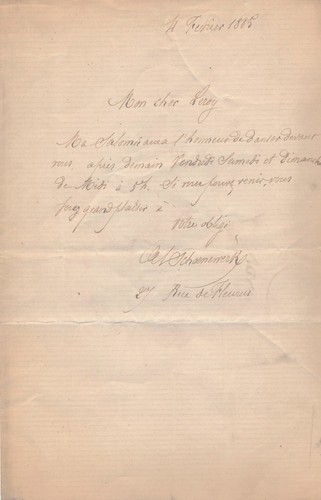 4 Fevrier 1885
Mon cher Leroy
Ma Salomé aura l'honneur de danser devant
vous, après demain Vendredi Samedi et Dimanche
de Midi à 5h. Si vous pouvez venir, vous
ferez grand plaisir à
votre obligé
Al Schoenewerk
27 Rue de Fleurus